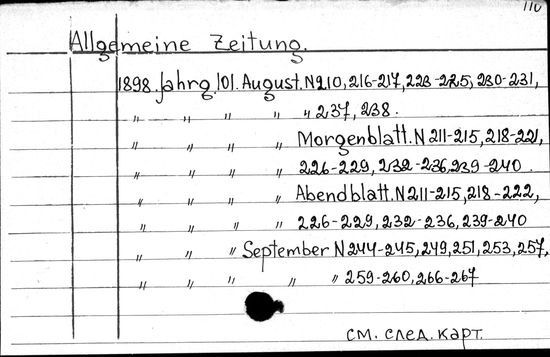 110
Allgemeine Zeitung.
1898. Jahrg. 101. August. N 210, 216-217, 223-225, 230-231,
„ „ „ „ „ 237, 238.
„ „ „ „ Morgenblatt. N 211-215, 218-221,
„ „ „ „ 226-229, 232-236, 239-240.
„ „ „ „ Abendblatt. N 211-215, 218-222,
„ „ „ „ 226-229, 232-236, 239-240
„ „ „ „ September N 244-245, 249, 251, 253, 257,
„ „ „ „ „ 259-260, 266-267
см. след. карт.